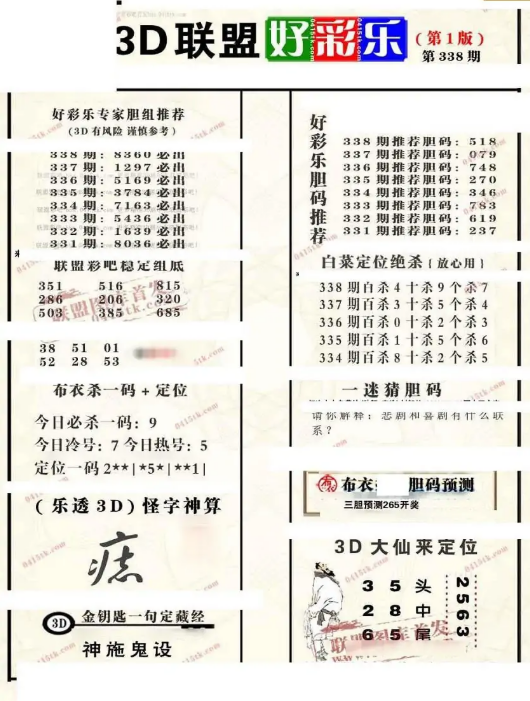 3D联盟好彩乐
(第1版)
第338期
好彩乐专家胆组推荐
(3D有风险 谨慎参考)
338期: 8360必出
337期: 1297必出
336期: 5169必出
335期: 3784必出
334期: 7163必出
333期: 5436必出
332期: 1639必出
331期: 8036必出
联盟彩吧稳定组底
351 516 815
286 206 320
503 385 685
38 51 01
52 28 53
布衣杀一码+定位
今日必杀一码: 9
今日冷号: 7 今日热号: 5
定位一码 2**|*5*|**1|
(乐透3D) 怪字神算
3D 金钥匙一句定藏经
神施鬼设
好彩乐胆码推荐
338期推荐胆码: 518
337期推荐胆码: 079
336期推荐胆码: 748
335期推荐胆码: 270
334期推荐胆码: 346
333期推荐胆码: 783
332期推荐胆码: 619
331期推荐胆码: 237
白菜定位绝杀{放心用}
338期百杀4十杀9个杀7
337期百杀3十杀5个杀4
336期百杀0十杀2个杀3
335期百杀1十杀5个杀6
334期百杀8十杀2个杀5
一迷猜胆码
请你解释: 悲剧和喜剧有什么联
系?
布衣 胆码预测
三胆预测265开奖
3D大仙来定位
3 5 头
2 8 中
6 5 尾
2563